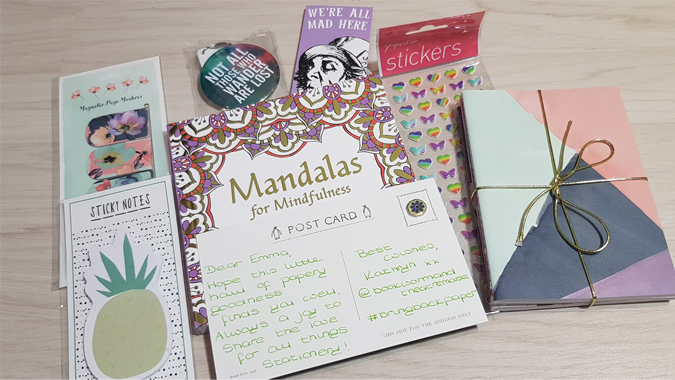 WE'RE ALL
MAD HERE
NOT ALL
THOSE WHO
WANDER
ARE LOST
stickers
Magnetic Page Markers
STICKY NOTES
Mandalas
for Mindfulness
POST CARD
Dear Emma,
Hope this little
haul of papery
goodness
finds you well.
Always a joy to
Share the love
for all things
Stationery!
Best
wishes,
Kathryn xx
#bringbackpaper
THIS SIDE FOR THE ADDRESS ONLY